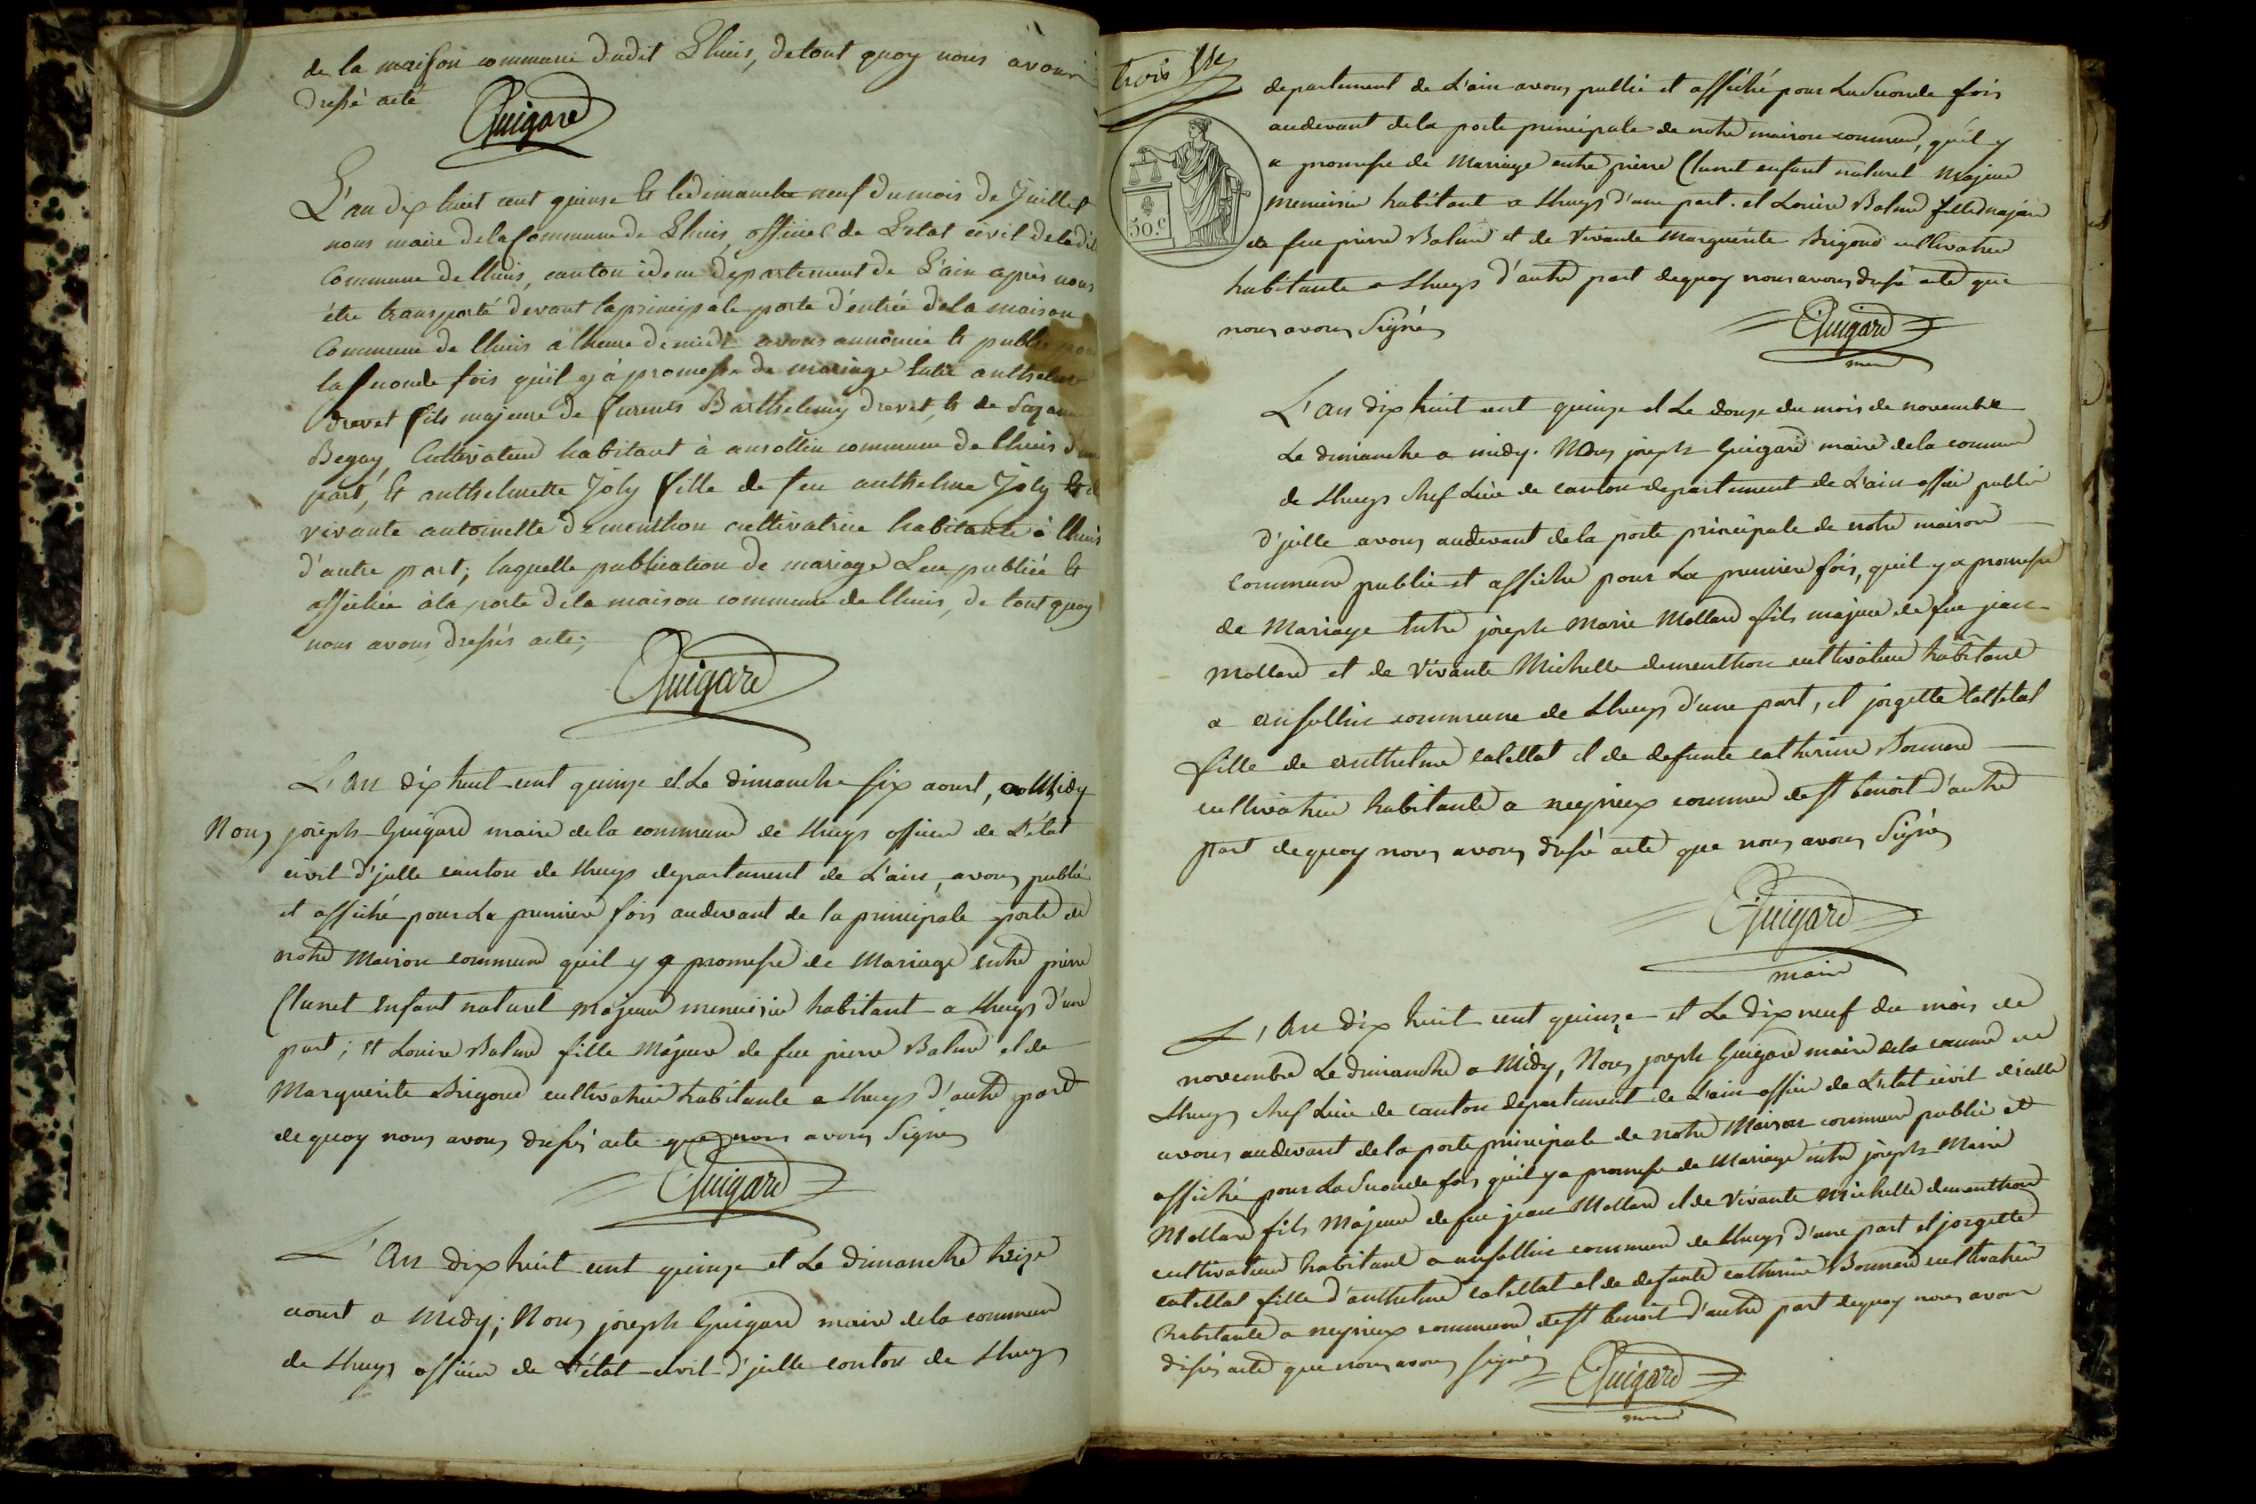 de la maison commune dudit Lhuis, de tout quoy nous avons
dressé acte
Guigard
L'an dix huit cent quinse & le dimanche neuf du mois de Juillet
nous maire de la Commune de Lhuis, officier de L'etat civil de ladit
Commune de lhuis, canton idem département de L'ain après nous
être transporté devant la principale porte d'entrée de la maison
Commune de lhuis à lheure de midi avons annoncé & publié pour
la seconde fois qu'il y à promesse de mariage Entre anthelme
Drevet fils majeur de Barthelemy drevet, & de
Begay Cultivateur habitant à ansollin commune de lhuis d'une
part, & anthelmette Joly fille de feu anthelme Joly & de
vivante antoinette Dementhon cultivatrice habitante à lhuis
d'autre part; laquelle publication de mariage Lue publiée &
affichée à la porte de la maison commune de lhuis, de tout quoy
nous avons dressés acte;
Guigard
L'An dix huit cent quinze et Le dimanche six aoust, a Midy
Nous joseph Guigard maire de la commune de Lhuys officier de L'état
civil d'jcelle canton de Lhuys departement de L'ain, avons publié
et affiché pour La premiere fois audevant de la principale porte de
notre Maison commune quil y a promesse de Mariage entre pierre
Clunet Enfant naturel majeur menuisier habitant a Lhuys d'une
part; et Louise Balme fille Majeure de feu pierre Balme et de
Marguerite Brigoud cultivatrice habitante a Lhuys d'autre part
de quoy nous avons dressés acte que nous avons Signés
Guigard
L'An dix huit cent quinze et Le dimanche treize
aoust a Midy; Nous joseph Guigard maire de la commune
de Lhuys officier de L'état civil d'jcelle canton de Lhuys
trois
30.C
departement de L'ain avons publié et affiché pour La Seconde fois
audevant de la porte principale de notre maison commune, qu'il y
a promesse de Mariage entre pierre Clunet enfant naturel Majeur
menuisier habitant a Lhuys d'une part. et Louise Balme fille majeure
de feu pierre Balme et de Vivante Marguerite Brigoud cultivatrice
habitante a Lhuys d'autre part de quoy nous avons dressé acte que
nous avons Signés
Guigard
maire
L'An dix huit cent quinze et Le douze du mois de novembre
Le dimanche a midy. Nous joseph Guigard maire de la commune
de Lhuys chef Lieu de canton departement de L'ain officier public
d'jcelle avons audevant de la porte principale de notre maison
commune publié et affiché pour La premiere fois, qu'il y a promesse
de Mariage Entre joseph Marie Mollard fils majeur de feu jean
Mollard et de Vivante Michelle dementhon cultivateur habitant
a ansollin commune de Lhuys d'une part, et jorgette Catellat
fille de anthelme Catellat et de defunte catherine Bonnard
cultivatrice habitante a neyrieux commune de St benoit d'autre
part de quoy nous avons dressé acte que nous avons Signés
Guigard
maire
L'An dix huit cent quinze et Le dix neuf du mois de
novembre Le dimanche a Midy, Nous joseph Guigard maire de la commune de
Lhuys chef Lieu de canton departement de L'ain officier de L'etat civil d'icelle
avons audevant de la porte principale de notre Maison commune publié et
affiché pour La Seconde fois qu'il y a promesse de Mariage entre joseph Marie
Mollard fils Majeur de feu jean Mollard et de Vivante Michelle dementhon
cultivateur habitant a ansollin commune de Lhuys d'une part et jorgette
catellat fille d'anthelme catellat et de defunte catherine Bonnard cultivatrice
habitante a neyrieux commune de St benoit d'autre part de quoy nous avons
dressés acte que nous avons signés
Guigard
maire